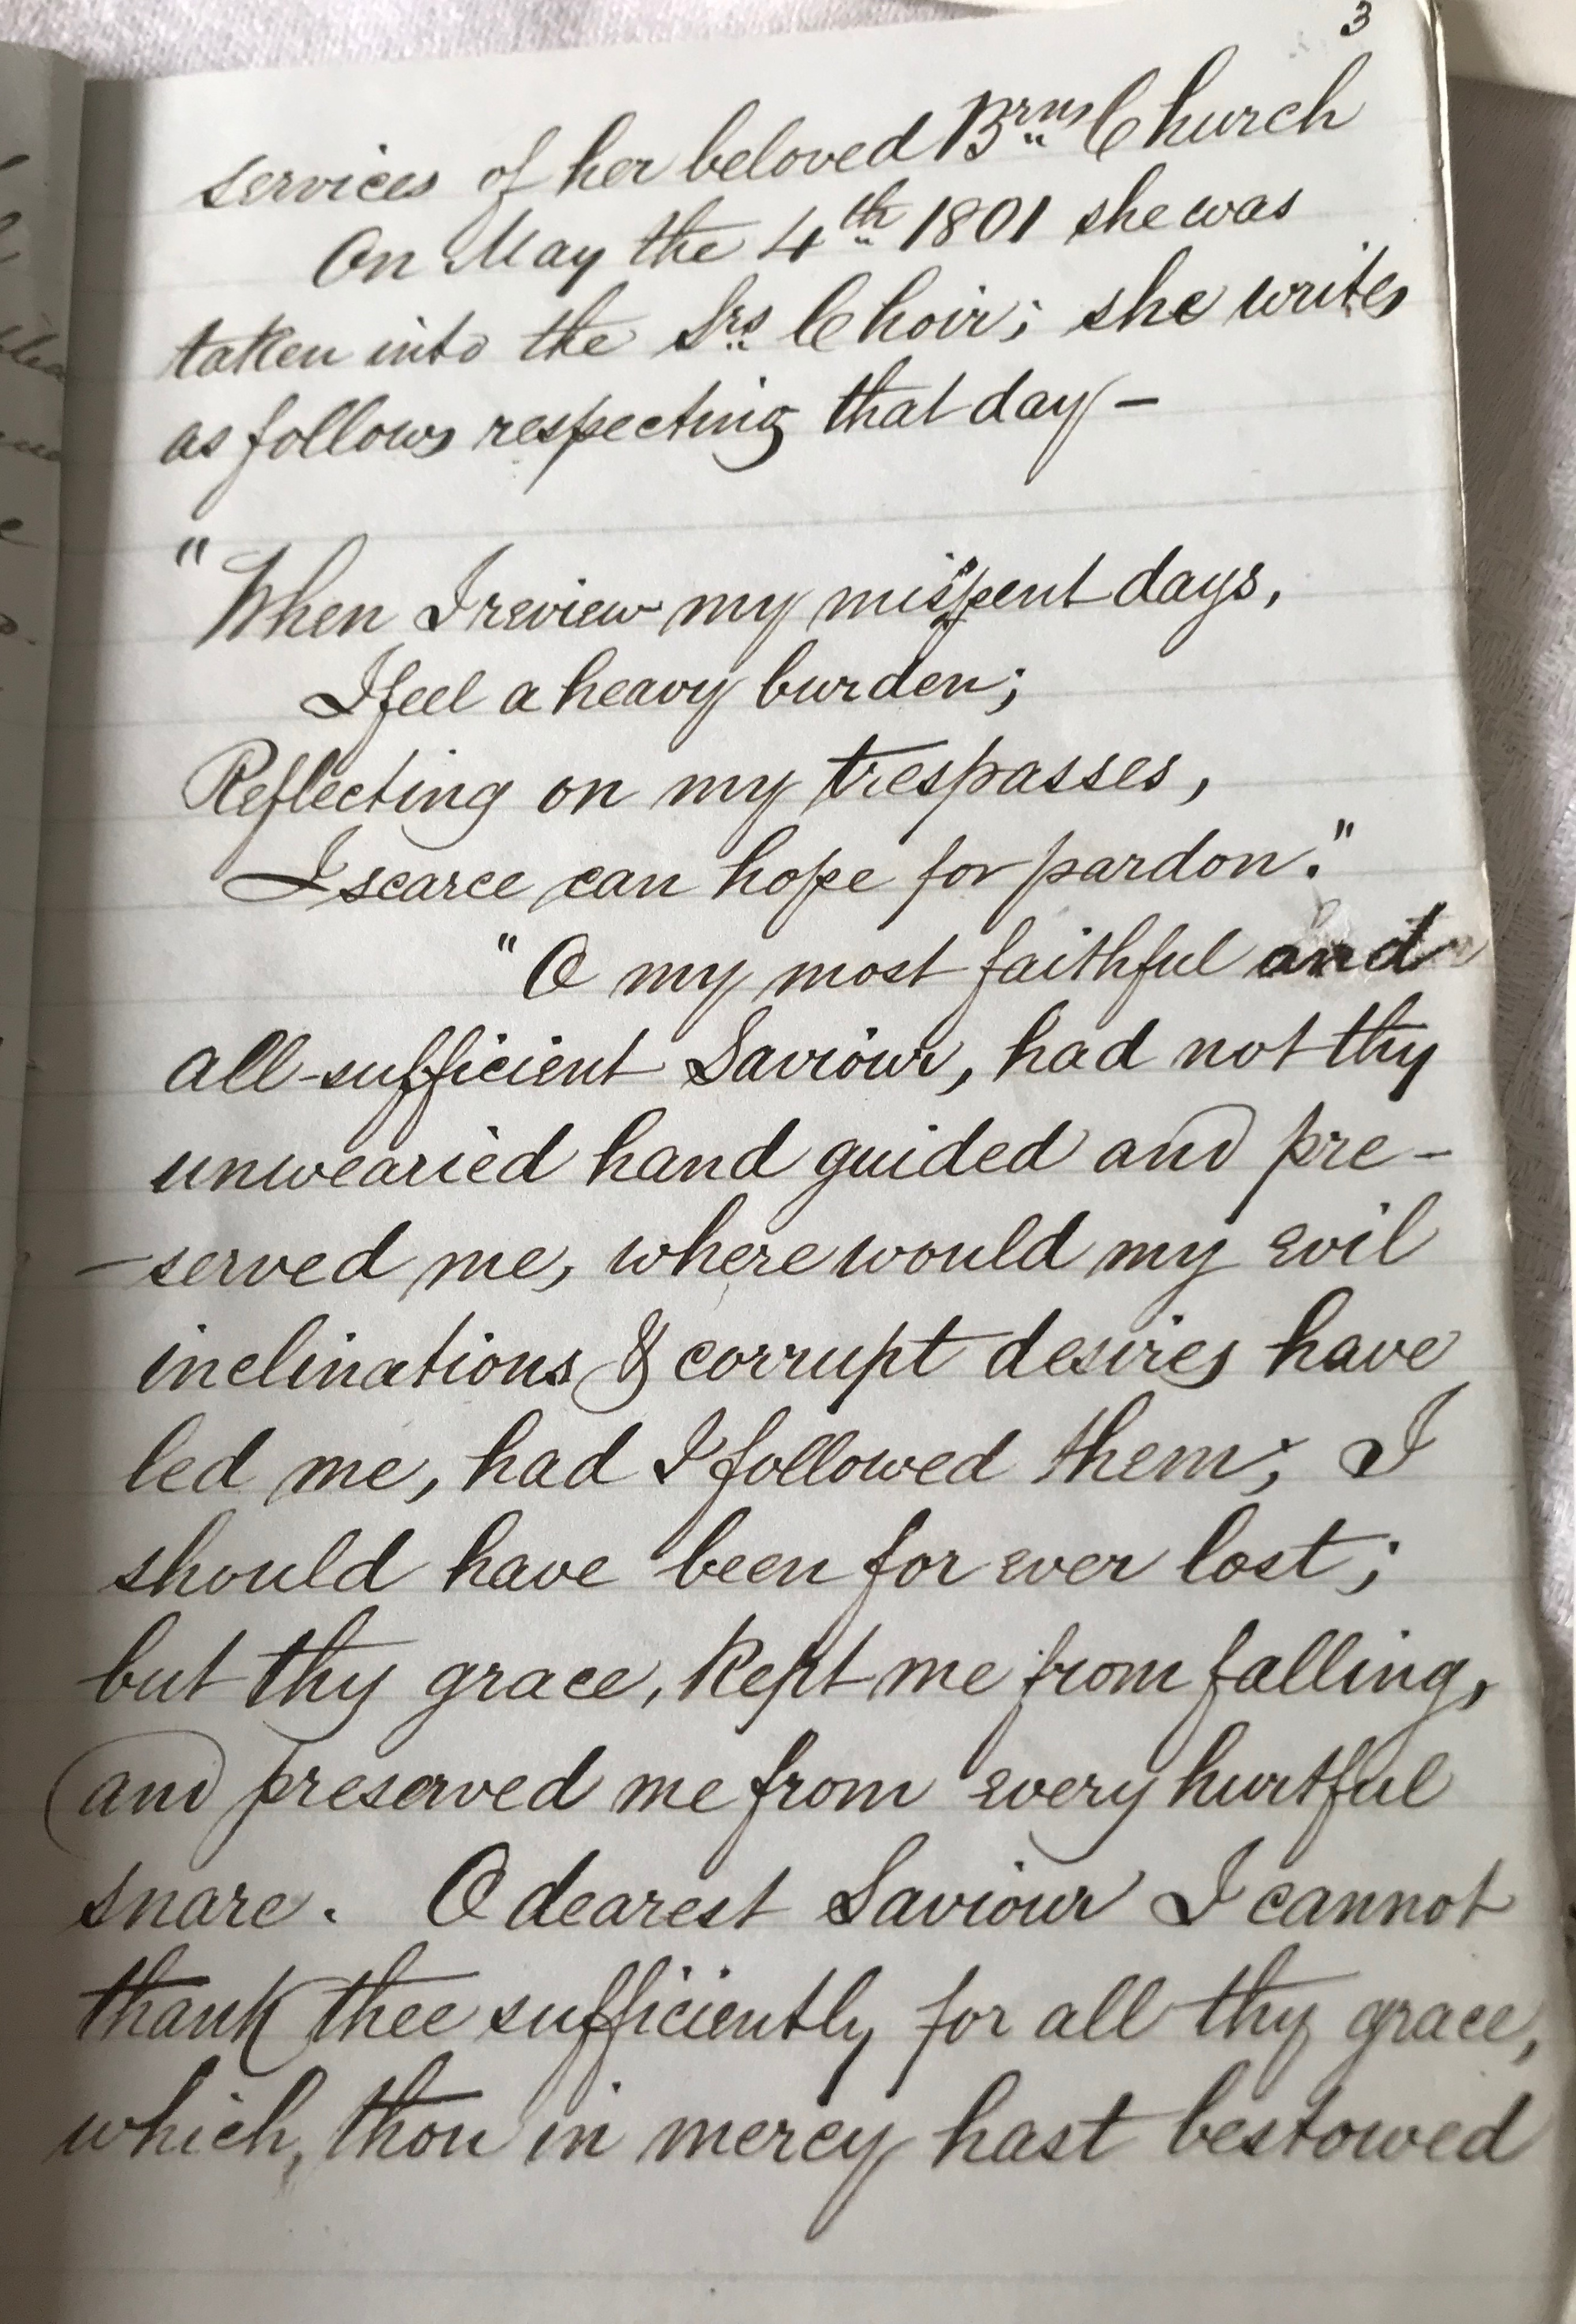 3
services of her beloved Brns Church
On May the 4th 1801 she was
taken into the Srs Choir; she writes
as follows respecting that day —
"When I review my mispent days,
I feel a heavy burden;
Reflecting on my trespasses,
I scarce can hope for pardon."
"O my most faithful and
all-sufficient Saviour, had not thy
unwearied hand guided and pre-
-served me, where would my evil
inclinations & corrupt desires have
led me, had I followed them; I
should have been for ever lost;
but thy grace, kept me from falling,
and preserved me from every hurtful
snare. O dearest Saviour I cannot
thank thee sufficiently for all thy grace,
which, thou in mercy hast bestowed